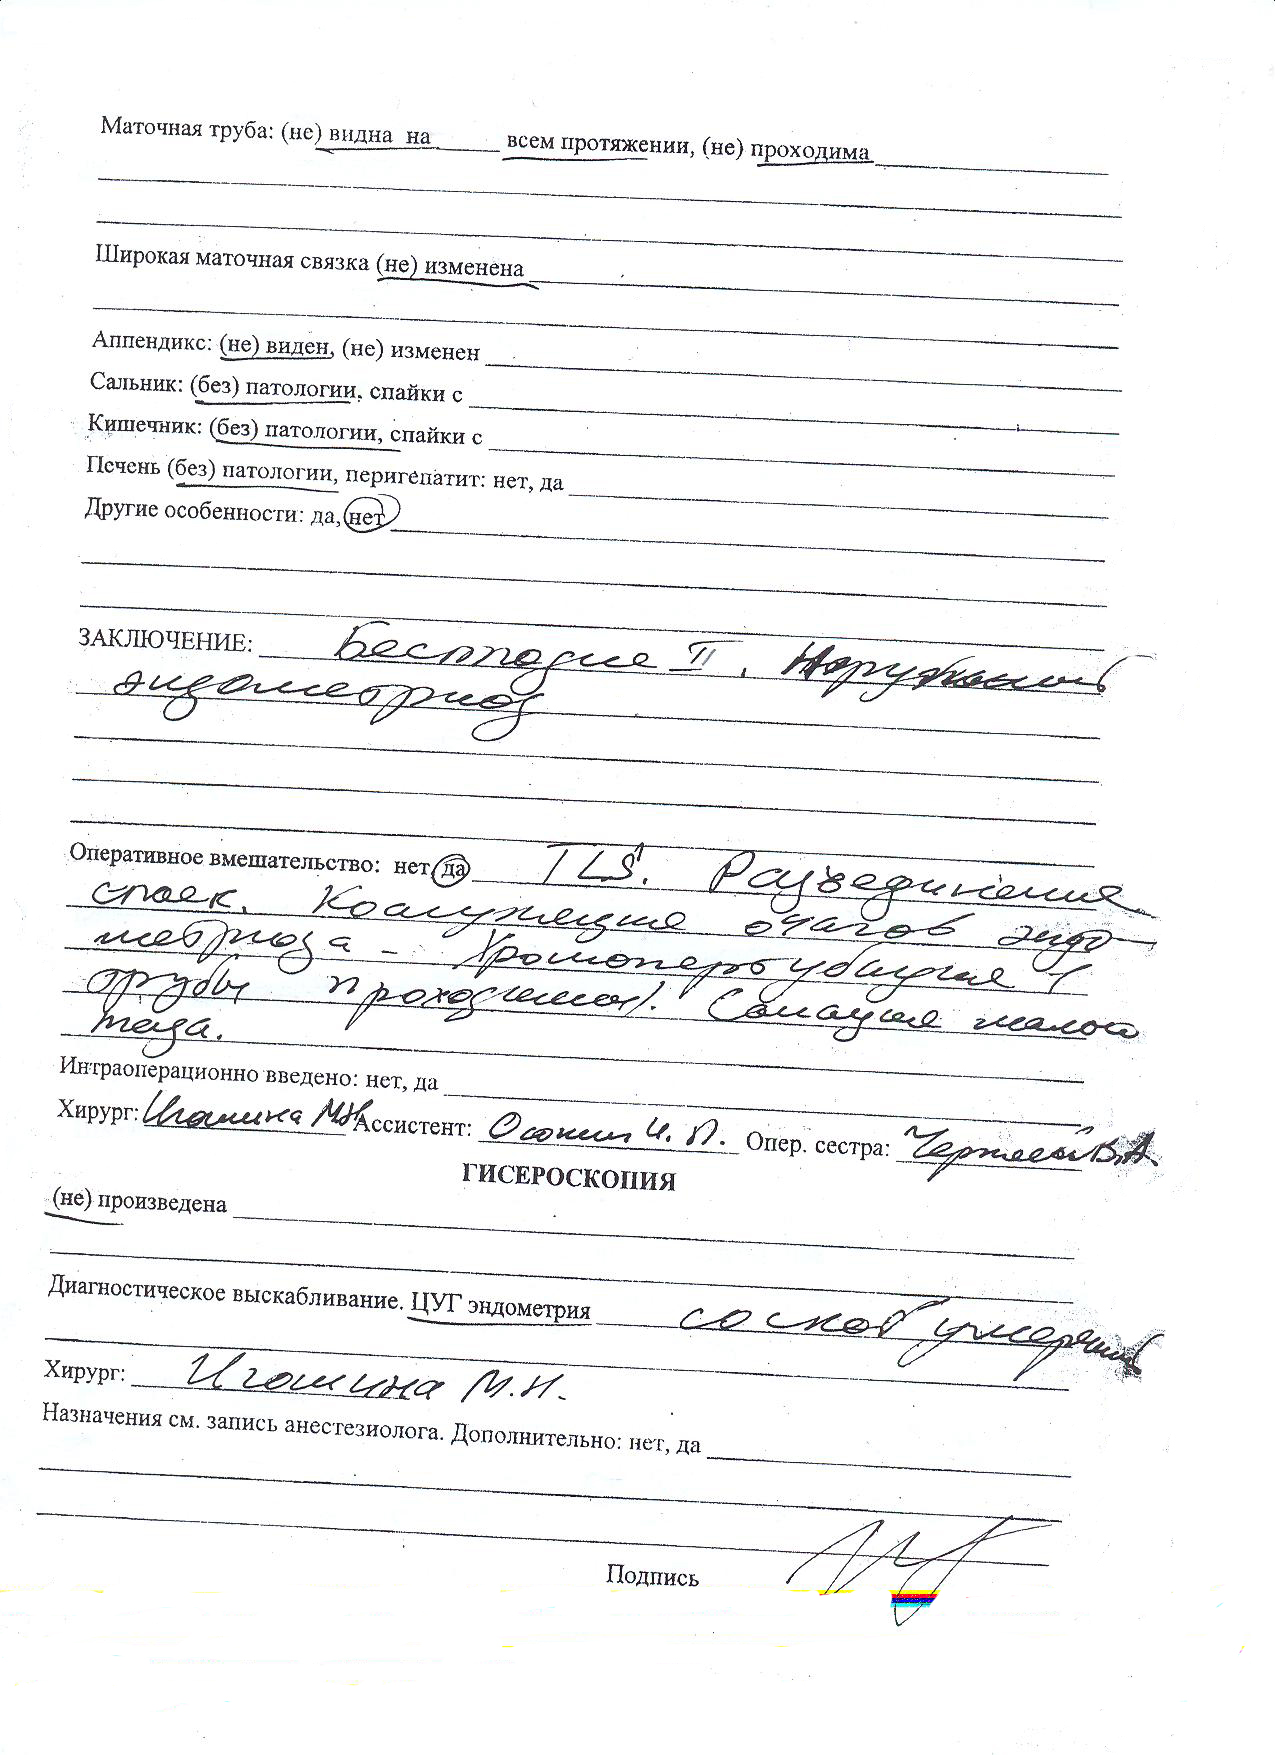 Маточная труба: (не) видна на _____ всем протяжении, (не) проходима
Широкая маточная связка (не) изменена
Аппендикс: (не) виден, (не) изменен
Сальник: (без) патологии, спайки с
Кишечник: (без) патологии, спайки с
Печень (без) патологии, перигепатит: нет, да
Другие особенности: да, нет
ЗАКЛЮЧЕНИЕ: Бесплодие II. Наружный
эндометриоз
Оперативное вмешательство: нет, да TLS. Разъединение
спаек. Коагуляция очагов эндо-
метриоза - Хромопертубация (
трубы проходимы). Санация малого
таза.
Интраоперационно введено: нет, да
Хирург: Игошина М.Н. Ассистент: И. П. Опер. сестра: В.А.
ГИСЕРОСКОПИЯ
(не) произведена
Диагностическое выскабливание. ЦУГ эндометрия соскоб умеренный
Хирург: Игошина М.Н.
Назначения см. запись анестезиолога. Дополнительно: нет, да
Подпись